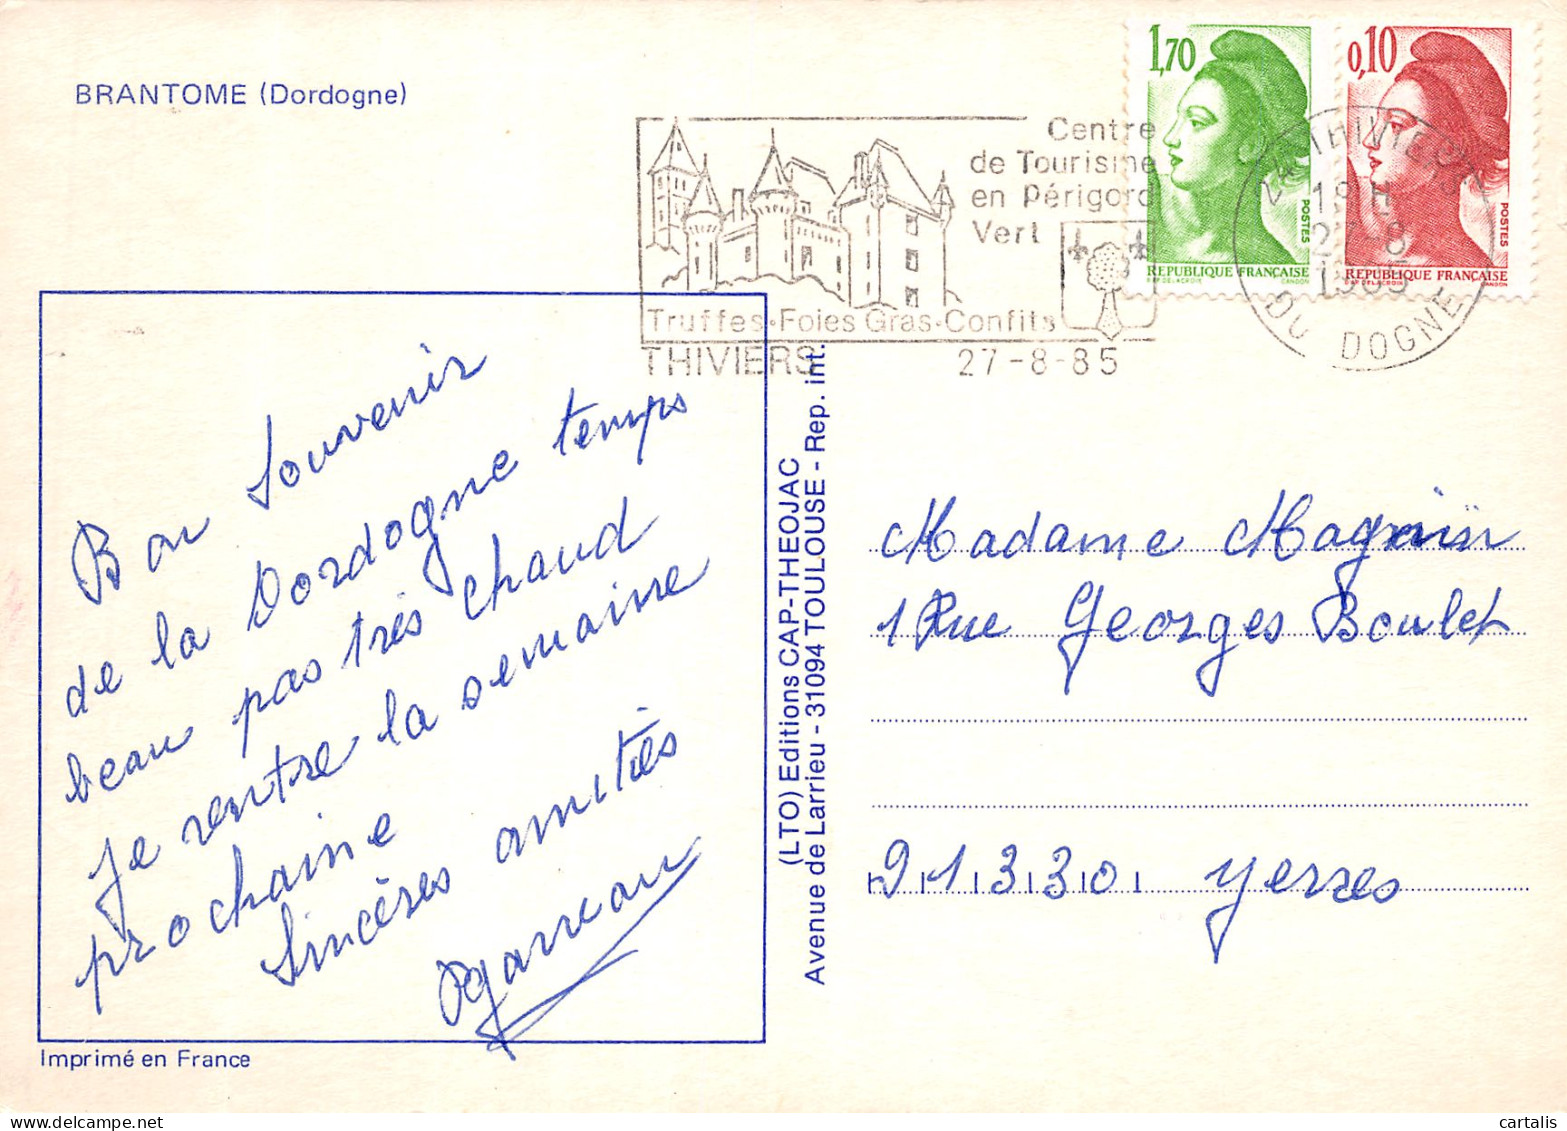 BRANTOME (Dordogne)
1,70
POSTES
REPUBLIQUE FRANÇAISE
D'AP. DELACROIX
GANDON
0,10
POSTES
REPUBLIQUE FRANÇAISE
D'AP. DELACROIX
GANDON
Centre
de Tourisme
en Périgord
Vert
Truffes-Foies Gras-Confits
THIVIERS 27-8-85
THIVIERS
18H
27-8
1985
DOGNE
Bon Souvenir
de la Dordogne temps
beau pas très chaud
je rentre la semaine
prochaine
Sincères amitiés
(LTO) Editions CAP-THEOJAC
Avenue de Larrieu - 31094 TOULOUSE - Rep. int.
Madame
1 Rue Georges Boulet
91330 Yerres
Imprimé en France
cartalis